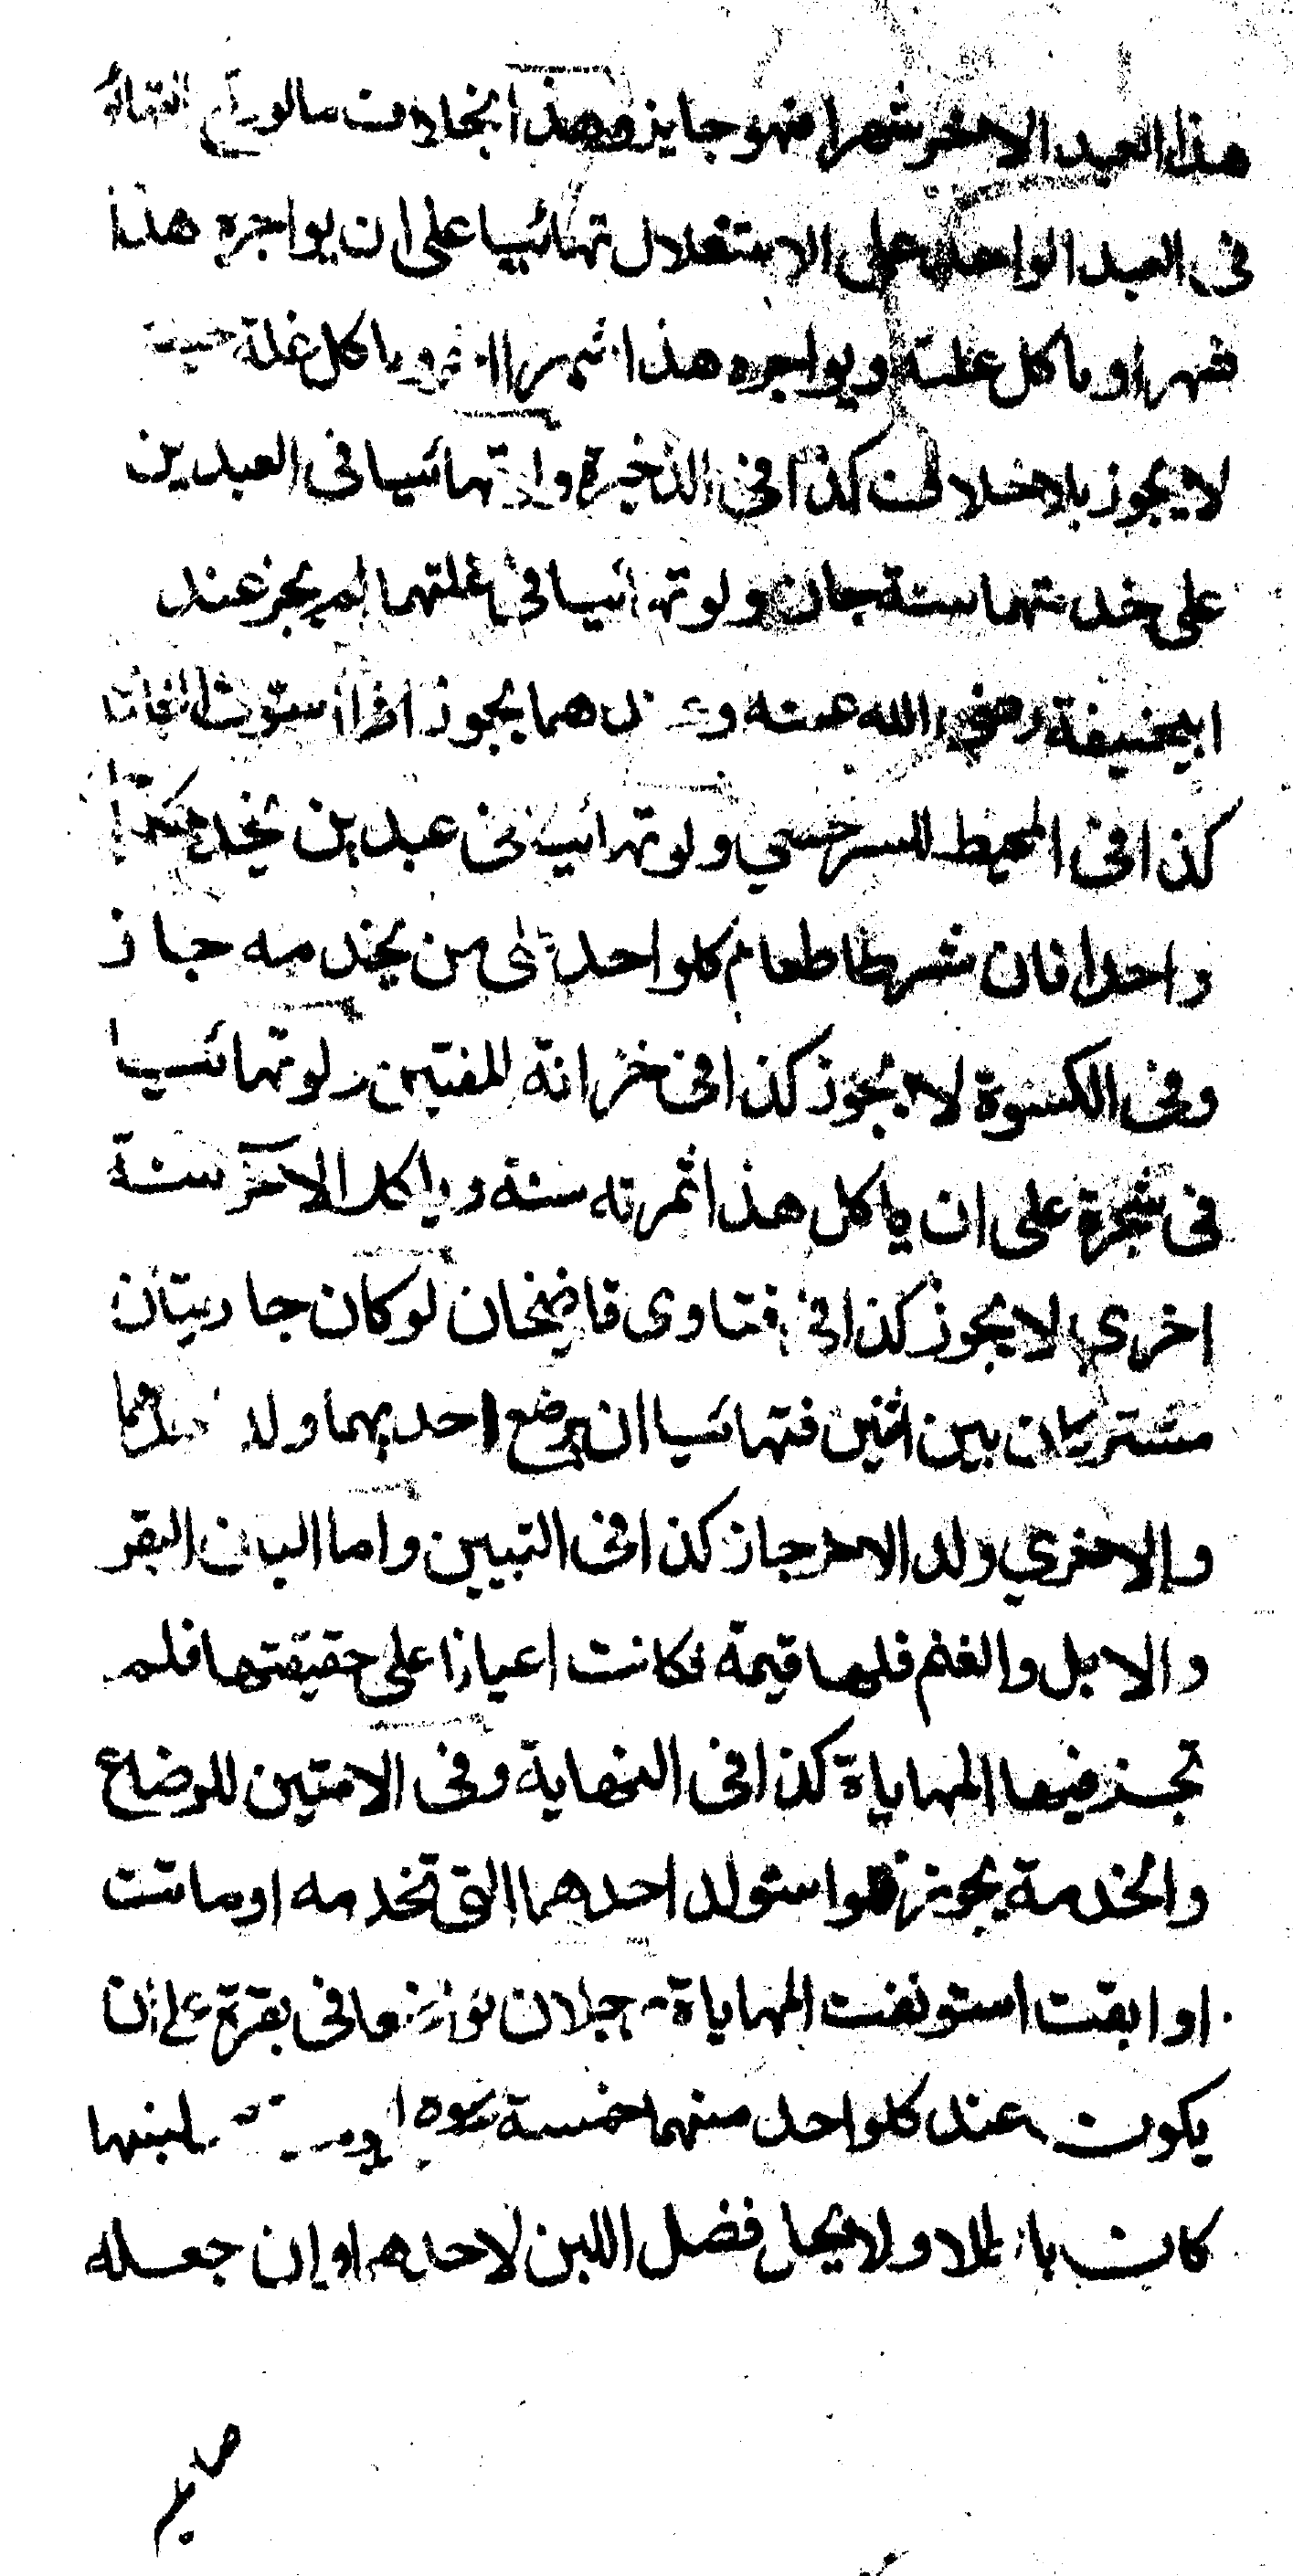 هذا العبد الاخر شهرا فهو جايز وهذا بخلاف مالو
فى العبد الواحد على الاستغلال تهائيا على ان يواجره هذا
شهرا وياكل غلته ويواجره هذا شهرا اخر وياكل غلة حيث
لا يجوز بلا خلاف كذا فى الذخيرة ولو تهائيا فى العبدين
على خدمتهما سنة جاز ولو تهائيا فى غلتهما لم يجز عند
ابيحنيفة رضى الله عنه وعندهما يجوز اذا استوت الغلتان
كذا فى المحيط للسرخسي ولو تهائيا فى عبدين يخدم
واحدا فان شرطا طعام كلواحد على من يخدمه جاز
وفى الكسوة لا يجوز كذا فى خزانة المفتين ولو تهائيا
فى شجرة على ان ياكل هذا ثمرته سنة وياكل الاخر سنة
اخرى لا يجوز كذا فى فتاوى قاضيخان لو كان جاريتان
مشتركان بين اثنين فتهائيا ان يرضع احديهما ولد احدهما
والاخرى ولد الاخر جاز كذا فى التبيين واما البان البقر
والابل والغنم فلها قيمة فكانت اعيانا على حقيقتها فلم
تجز فيها المهاياة كذا فى النهاية وفى الامتين للرضاع
والخدمة يجوز فلو استولد احدهما التى تخدمه او ماتت
او ابقت استونفت المهاياة رجلان تواضعا فى بقرة على ان
يكون عند كلواحد منهما خمسة عشرة يوما لبنها
كان باطلا ولا يحل فضل اللبن لاحدهما وان جعله